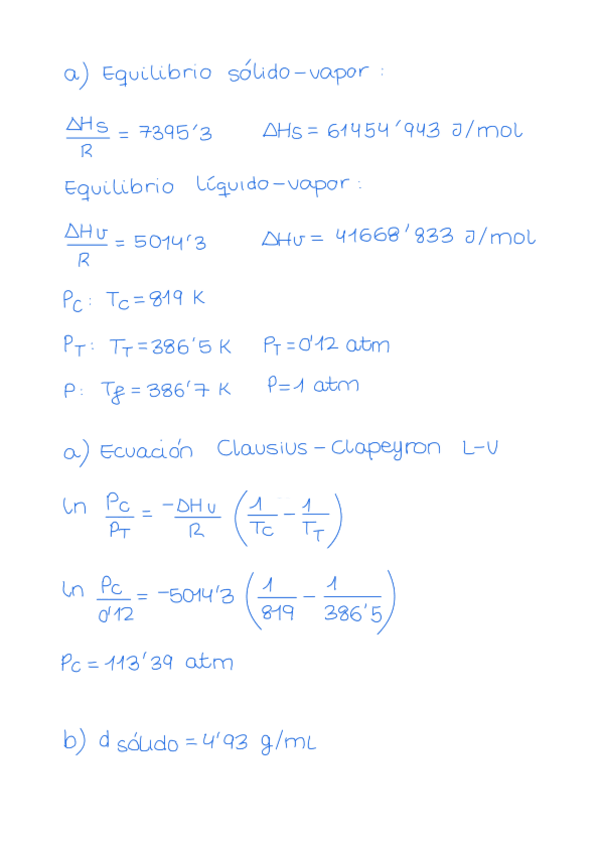 a) Equilibrio sólido-vapor:
ΔHs/R = 7395'3 ΔHs = 61454'943 J/mol
Equilibrio líquido-vapor:
ΔHv/R = 5014'3 ΔHv = 41668'833 J/mol
Pc: Tc = 819 K
PT: TT = 386'5 K PT = 0'12 atm
P: Tf = 386'7 K P = 1 atm
a) Ecuación Clausius-Clapeyron L-V
ln Pc/PT = -ΔHv/R (1/Tc - 1/TT)
ln Pc/0'12 = -5014'3 (1/819 - 1/386'5)
Pc = 113'39 atm
b) d sólido = 4'93 g/mL